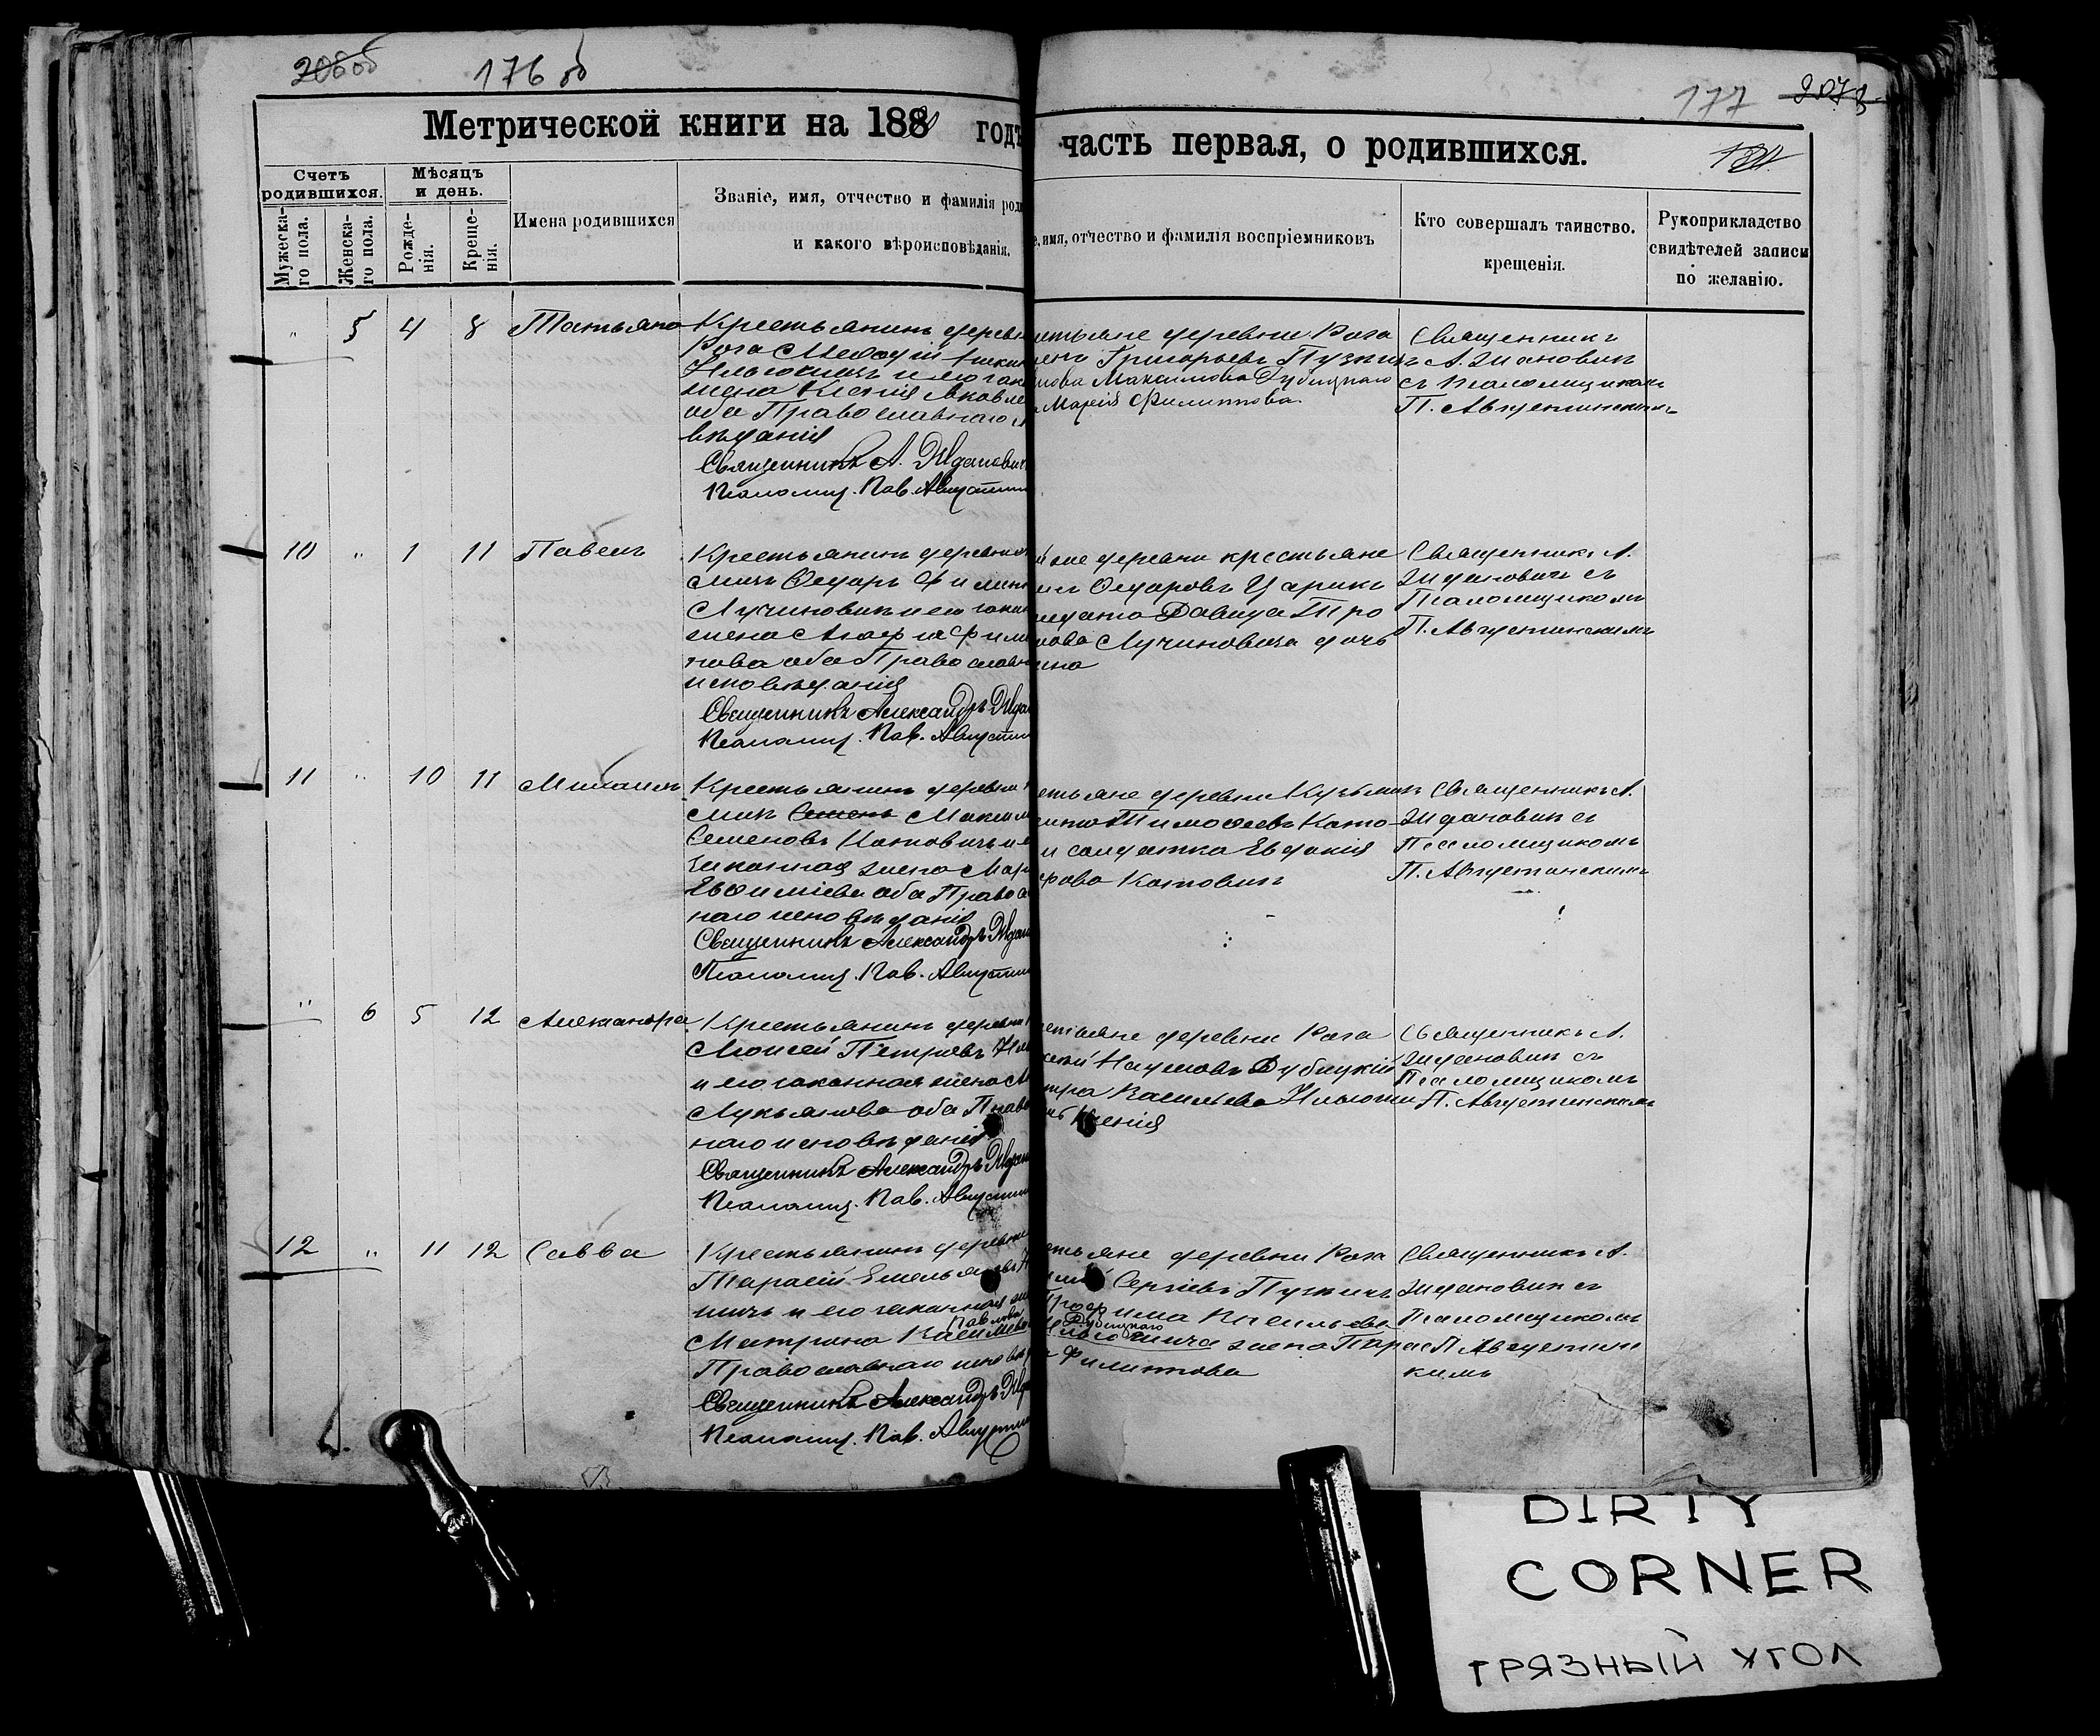 206об 176 об
177 207
Метрической книги на 188 годъ часть первая, о родившихся.
Счетъ родившихся.
Мѣсяцъ и день.
Мужеска-го пола.
Женска-го пола.
Рожде-нія.
Креще-нія.
Имена родившихся
Званіе, имя, отчество и фамилія роди
и какого вѣроисповѣданія.
имя, отчество и фамилія воспріемниковъ
Кто совершалъ таинство.
крещенія.
Рукоприкладство
свидѣтелей записи
по желанію.
" 5 4 8 Татьяна
Крестьянинъ дерев
Рога Меѳодій
и его зак
жена Ксенія Яковле
оба Православнаго
вѣданія
Священникъ А. Ждановичъ
Псаломщ. Пав. Августин
стьяне деревни Рога
Григорьевъ Пузки
Максимова Дубицкаго
Марія Филиппова
Священникъ
А. Жданович
съ псаломщикомъ
П. Августинскимъ
10 " 1 11 Павелъ
Крестьянинъ деревни
мичъ Ѳедоръ Филип
Лучиновичъ и его закон
жена Агафія Фили
пова оба Православн
исповѣданія
Священникъ Александръ Жда
Псаломщ. Пав. Августин
же деревни крестьяне
Ѳедоровъ Царикъ
Давида Тро
мова Лучиновича дочь
Священникъ А.
Жданович съ
Псаломщикомъ
П. Августинскимъ
11 " 10 11 Михаилъ
Крестьянинъ деревни
мичъ Семенъ Максим
Семеновъ Катовичъ и е
законная жена Мар
Евѳиміева оба Правосл
наго исповѣданія
Священникъ Александръ Ждан
Псаломщ. Пав. Августин
стьяне деревни Кузьми
Тимоѳеевъ Като
и солдатка Евдокія
рова Катович
Священникъ А.
Жданович съ
Псаломщикомъ
П. Августинскимъ
" 6 5 12 Александра
Крестьянинъ деревни
Моисей Петровъ Иль
и его законная жена
Лукьянова оба Право
наго исповѣданія
Священникъ Александръ Ждан
Псаломщ. Пав. Августин
стьяне деревни Рога
Наумовъ Дубицкій
Васильева Ильюши
Ксенія
Священникъ А.
Жданович съ
Псаломщикомъ
П. Августинскимъ
12 " 11 12 Савва
Крестьянинъ деревни
Тарасій Емельяновъ
шичъ и его законная
Павлова
Матрона
Православнаго исповѣд
Священникъ Александръ Жд
Псаломщ. Пав. Августин
стьяне деревни Рога
Сергіевъ Пузкичъ
Трофима Васильева
Дубицкаго
жена Пара
Филиппова
Священникъ А.
Жданович съ
Псаломщикомъ
П. Августинс
кимъ
DIRTY
CORNER
ГРЯЗНЫЙ УГОЛ